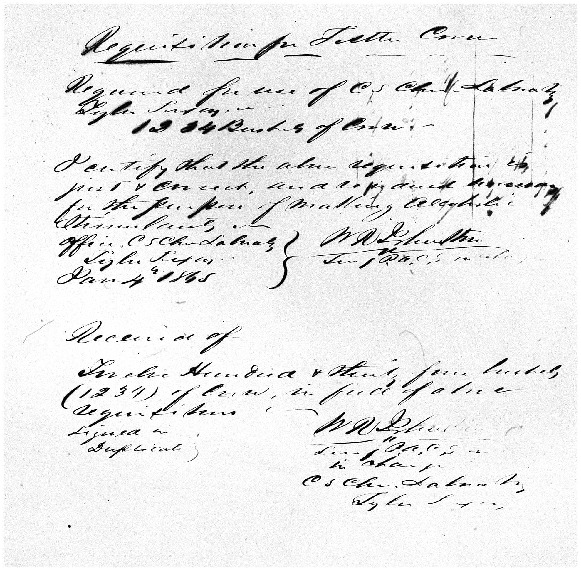 Requisition for Tithe Corn
Required for use of C S Chem Labratory
Tyler Texas
1234 Bushels of Corn
I certify that the above requisition is
just & correct, and required necessary
for the purpose of making alcoholic
Stimulants,
Office C S Chem Labraty
Tyler Texas
Jan 4th 1865
W R
Surg P.A.C.S.
Received of
Twelve Hundred & thirty four bushels
(1234) of Corn, in full of above
requisition
Signed in
Duplicate
W R
Surg P.A.C.S.
in charge
C S Chem Labratry
Tyler Texas